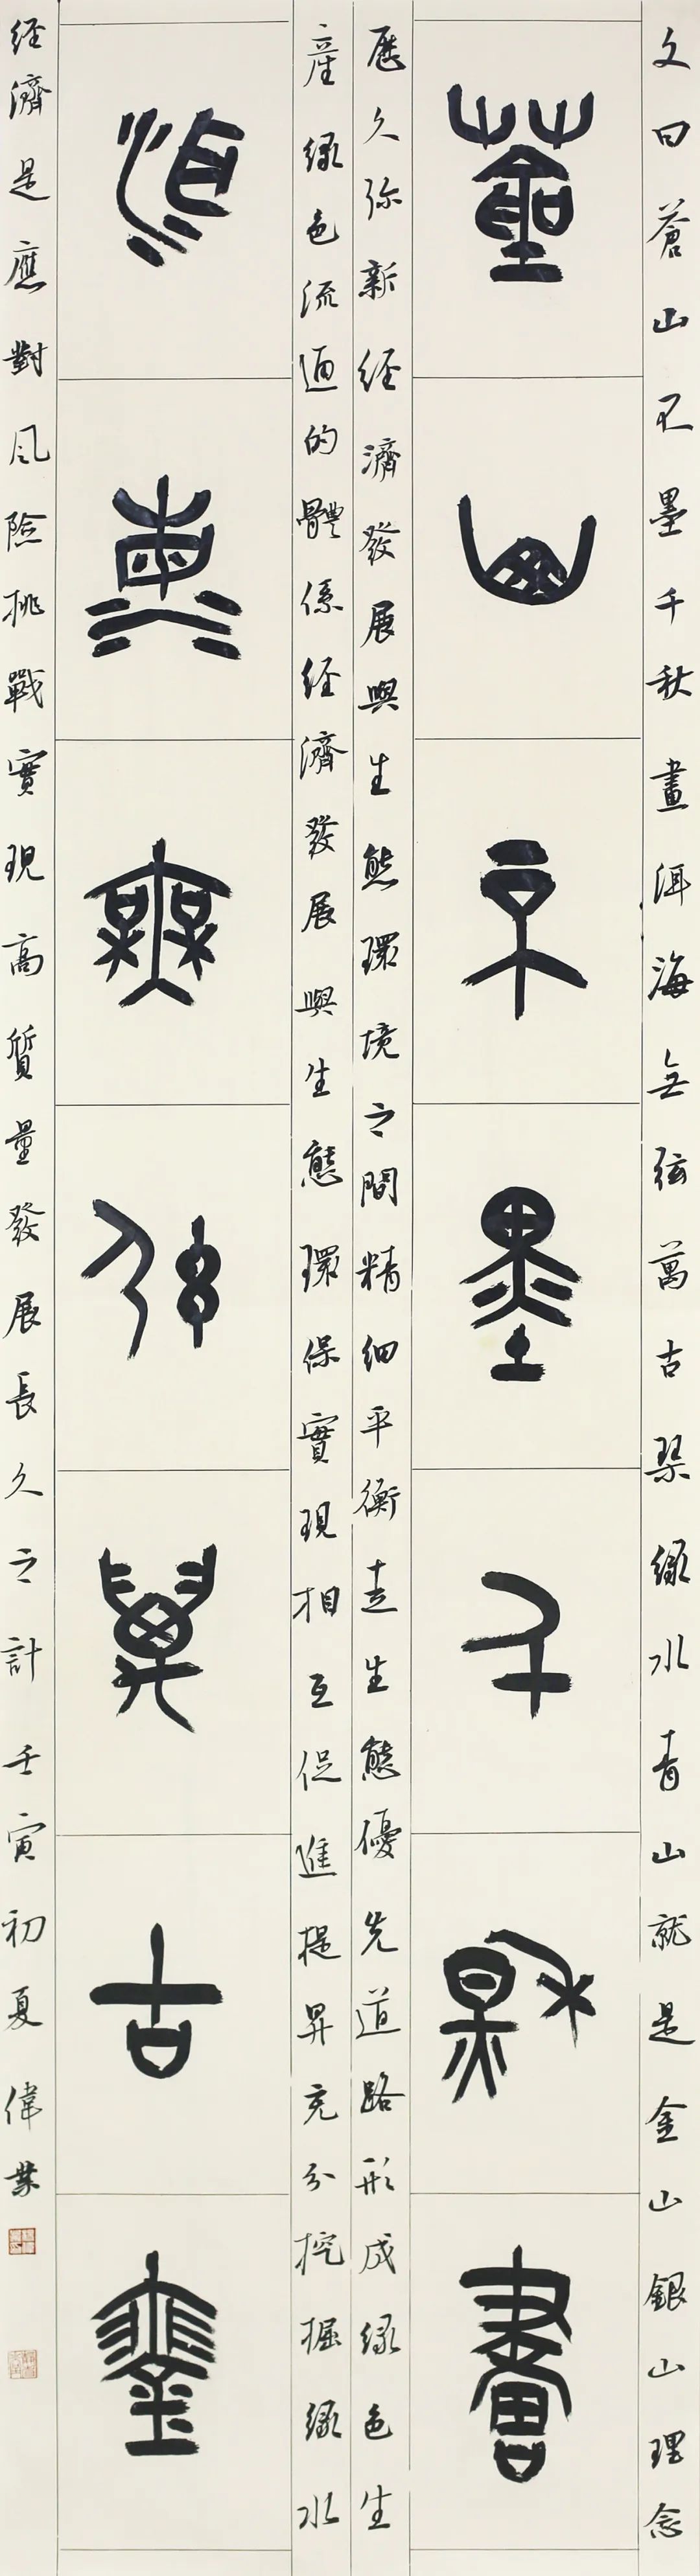 文曰蒼山不墨千秋畫洱海无弦萬古琴緑水青山就是金山銀山理念
蒼山不墨千秋畫
歷久弥新经濟發展與生態環境之間精细平衡走生態優先道路形成緑色生
産緑色流通的體係经濟發展與生態環保實現相互促進提昇充分挖掘緑水
洱海無弦萬古琴
经濟是應對風險挑戰實現高質量發展長久之計壬寅初夏偉業